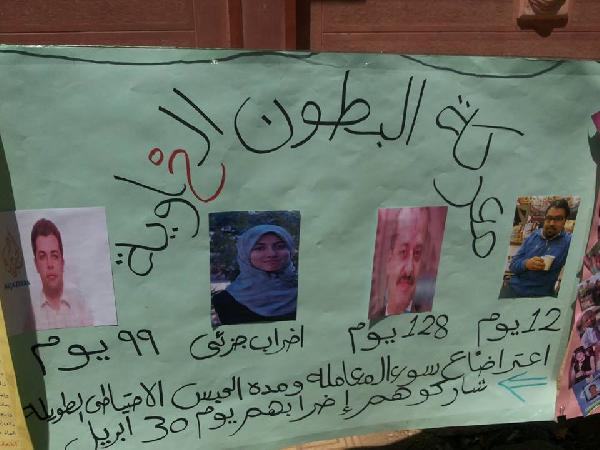 معركة البطون الخاوية
12 يوم
128 يوم
اضراب جزئى
99 يوم
اعتراضا ع سوء المعامله ومدة الحبس الاحتياطى الطويلة
شاركوهم إضرابهم يوم 30 ابريل